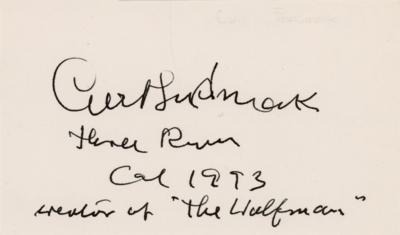 Curt Siodmak
Three Rivers
Cal 1993
creator of "The Wolfman"